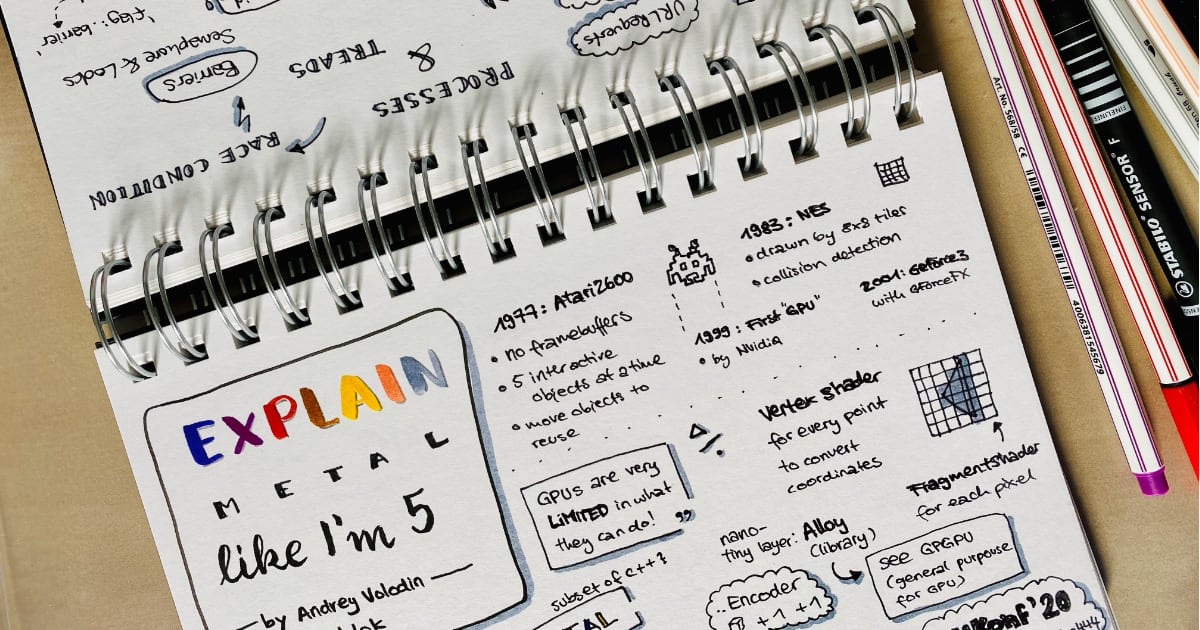 'flag: barrier'
Semaphore & Locks
Barriers
URLRequests
PROCESSES
&
TREADS
RACE CONDITION
EXPLAIN
METAL
like I'm 5
— by Andrey Volodin —
1977: Atari2600
• no framebuffers
• 5 interactive
objects at a time
• move objects to
reuse
GPUs are very
LIMITED in what
they can do! "
subset of c++?
1983: NES
• drawn by 8x8 tiles
• collision detection
1999: First "GPU"
• by Nvidia
2001: Geforce3
with GForceFX
Vertex shader
for every point
to convert
coordinates
Fragmentshader
for each pixel
nano-
tiny layer: Alloy
(library)
see GPGPU
(general purpouse
for GPU)
Encoder
+1 +1
'20
Art. No. 568/58 CE
4006381545679
FINELINER
STABILO® SENSOR F